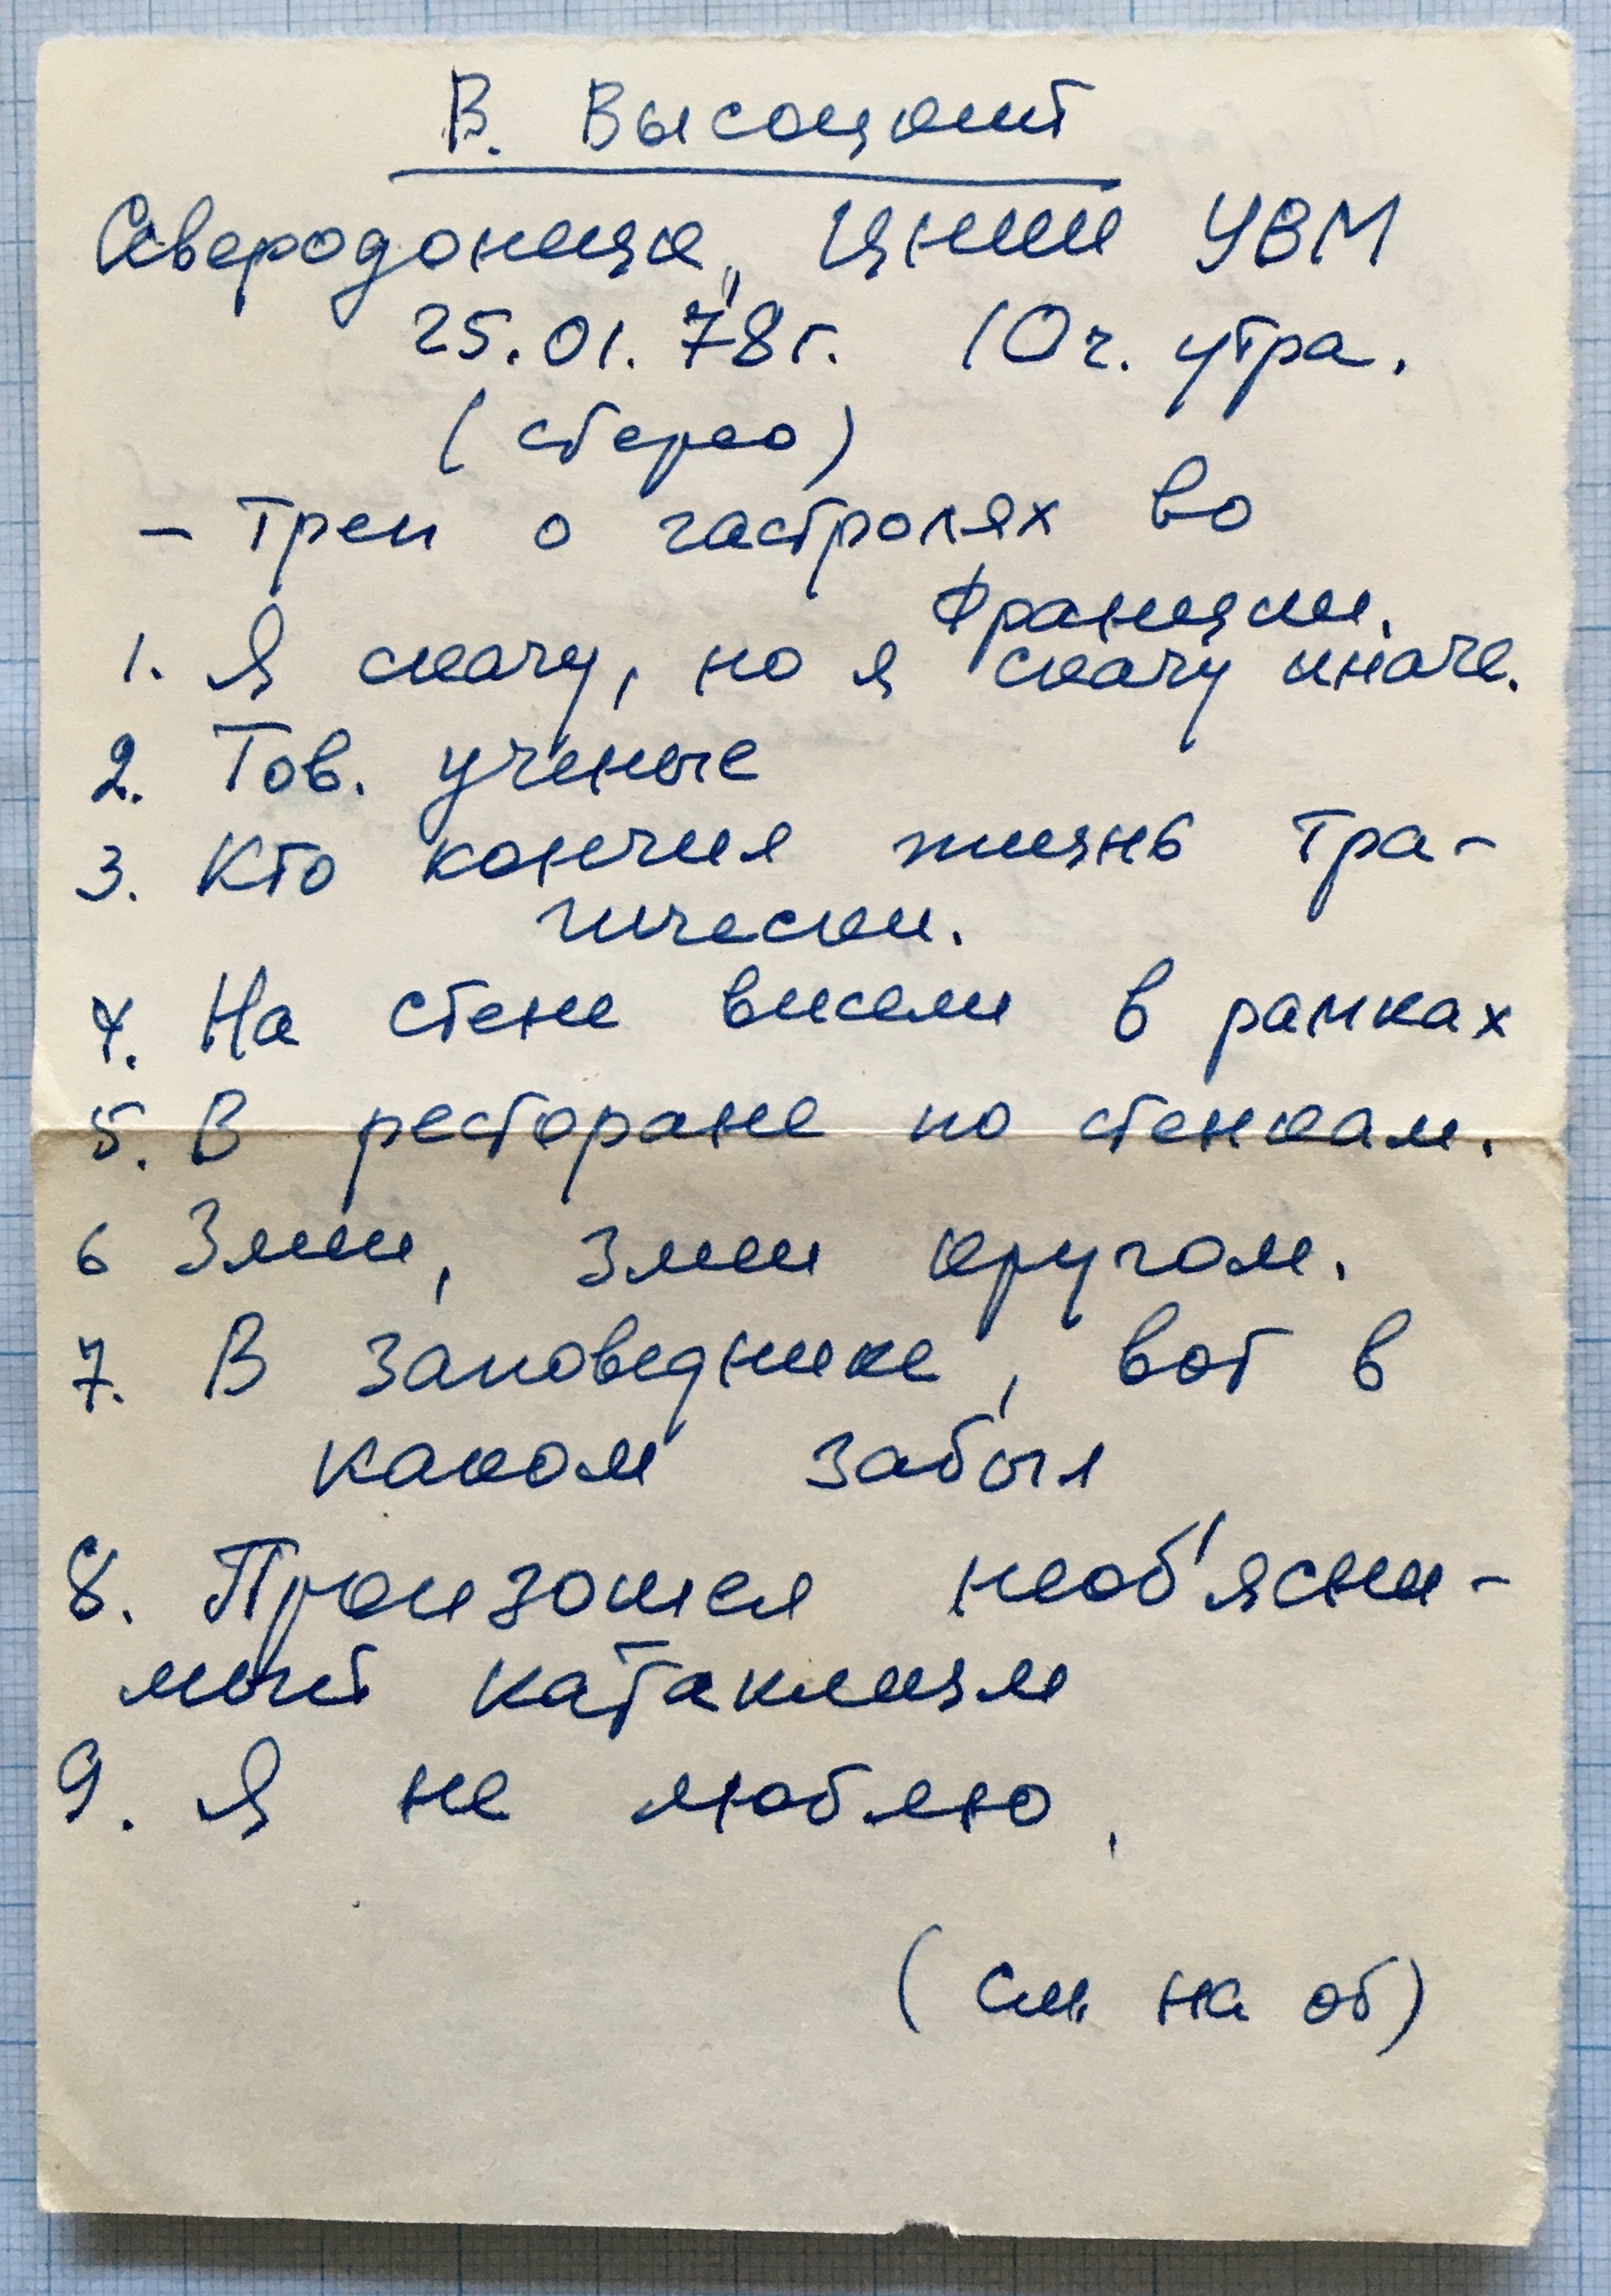 В. Высоцкий
Северодонецк, ЦНИИ УВМ
25.01.78г. 10ч. утра.
(стерео)
- Треп о гастролях во
Франции.
1. Я скачу, но я скачу иначе.
2. Тов. ученые
3. Кто кончил жизнь тра-
гически.
4. На стене висели в рамках
5. В ресторане по стенкам.
6 Змеи, змеи кругом.
7. В заповеднике, вот в
каком забыл
8. Произошел необ'ясни-
мый катаклизм
9. Я не люблю.
(см. на об)